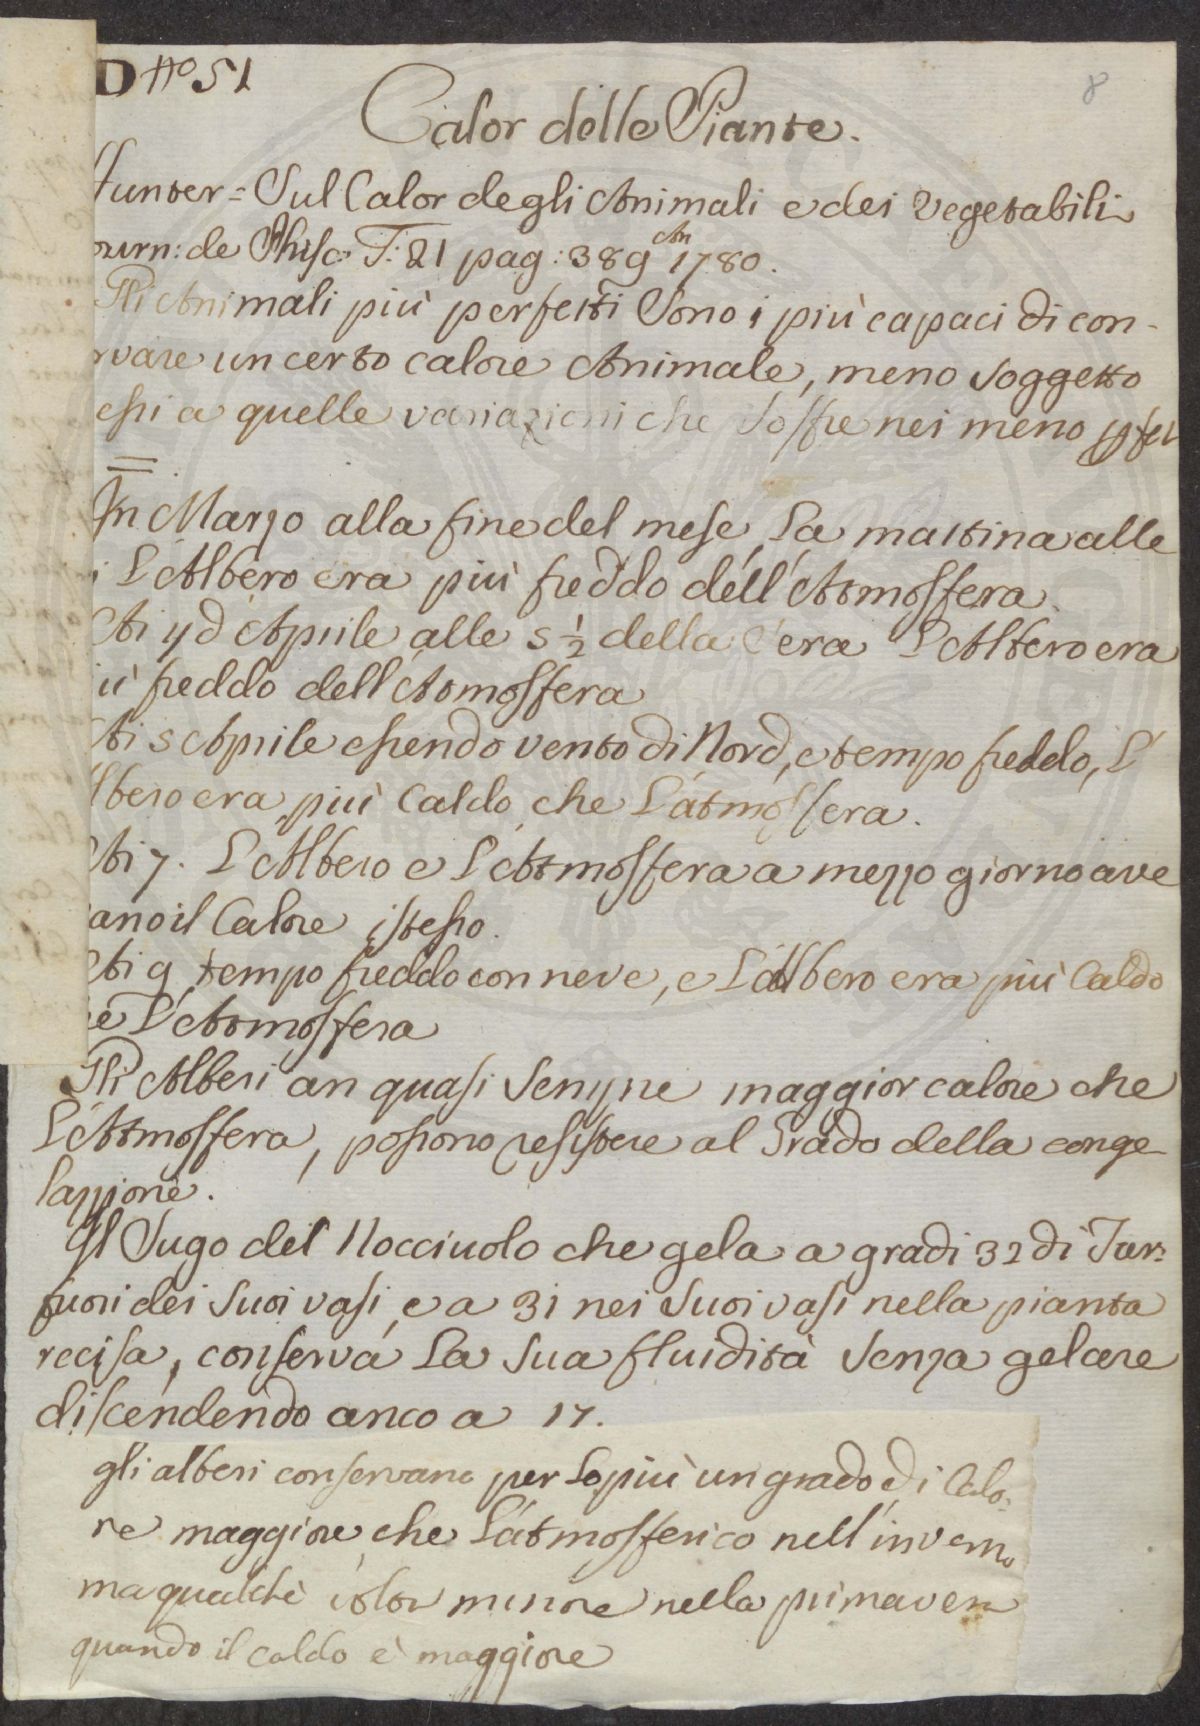 D no 51
8
Calor delle Piante.
Hunter = Sul Calor degli Animali e dei Vegetabili
ourn: de Phisc: T: 21 pag: 389 An 1780.
Gli Animali più perfetti Sono i più capaci di con-
rvare un certo calore Animale, meno Soggetto
essi a quelle variazioni che Soffre nei meno
In Marzo alla fine del mese, La mattina alle
L'Albero era più freddo dell'Atmosfera.
Ai 4 d'Aprile alle 5 1/2 della Sera L'Albero era
iù freddo dell'Atmosfera
Ai 5 Aprile essendo vento di Nord, e tempo freddo, L'
lbero era più Caldo, che L'atmosfera.
Ai 7. L'Albero e L'Atmosfera a mezzo giorno ave
ano il Calore istesso.
Ai 9 tempo freddo con neve, e L'albero era più Caldo
he L'Atmosfera
Gli Alberi an quasi Sempre maggior calore che
L'Atmosfera, possono resistere al Grado della conge-
lazzione.
Il Sugo del Nocciuolo che gela a gradi 32 di Far:
fuori dei Suoi vasi, e a 31 nei Suoi vasi nella pianta
recisa, conserva La Sua fluidità Senza gelare
discendendo anco a 17.
gli alberi conservano per Lo più un grado di Calo-
re maggiore che L'atmosferico nell'inverno
ma qualche volta minore nella primavera
quando il caldo è maggiore